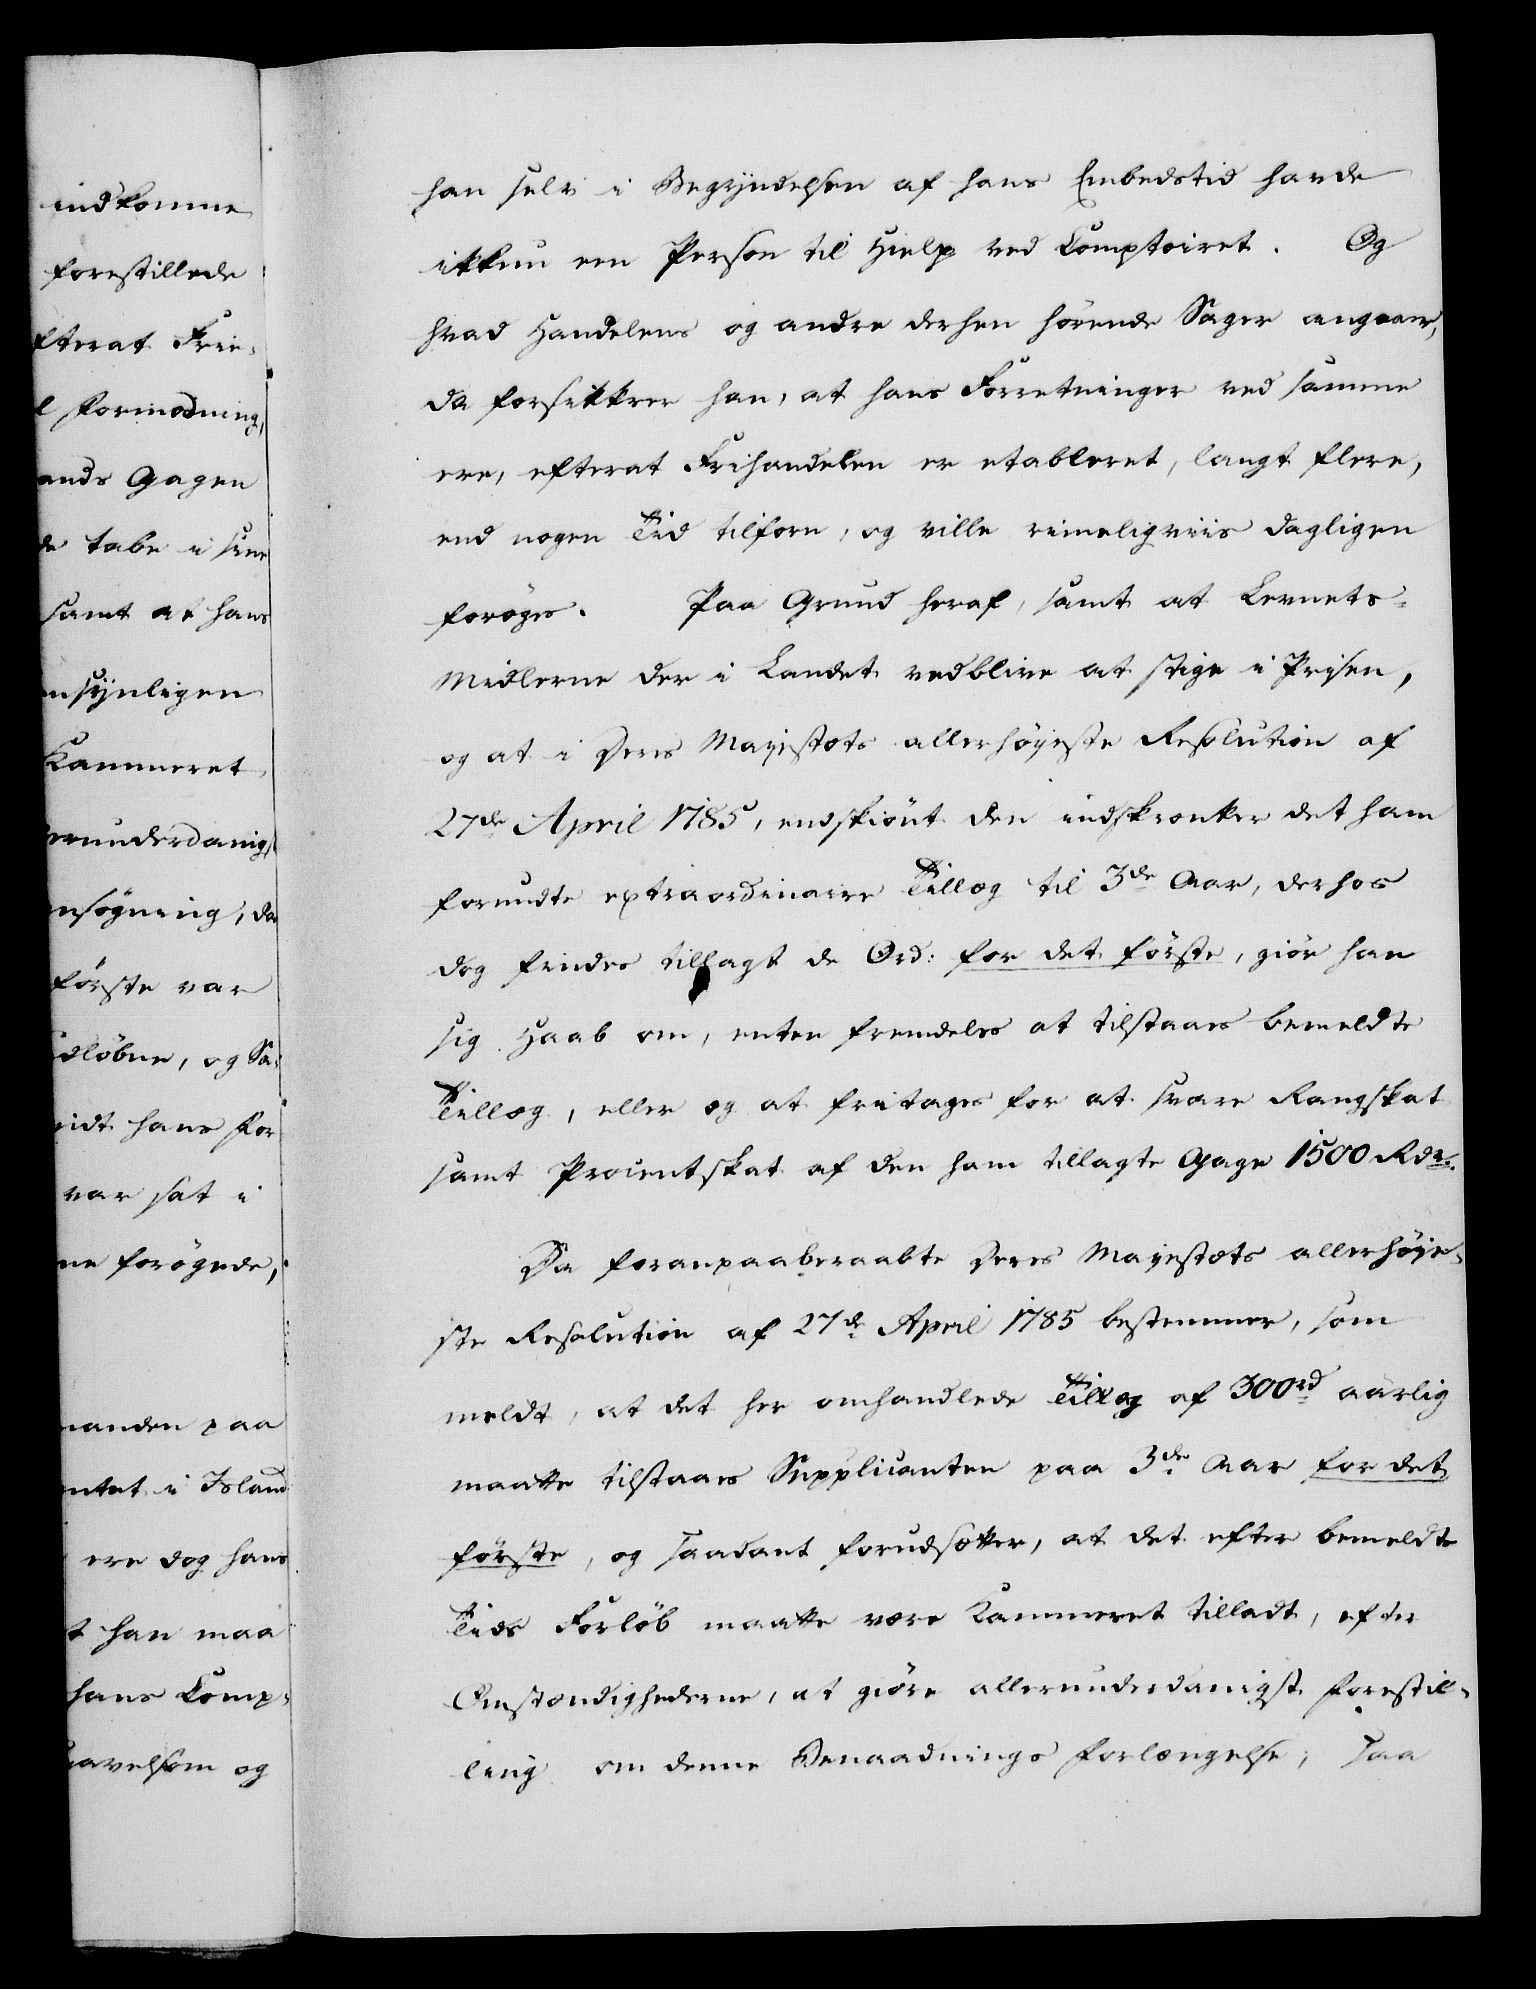 indkomne
forestillede
fterat Frie-
l Formodning,
ands Gagen
de tabe i sine
samt at hans
nsÿnligen
Kammeret
erunderdanig
nsögning, da
förste var
dlöbne, og Sa-
idt hans For
var sat i
ne forögede,
manden paa
ntet i Island
ere dog hans
t han maa
hans Comp-
avelsom og
han selv i Begÿndelsen af hans Embedstid havde
ikkun een Person til Hielp ved Comptoiret. Og
hvad Handelens og andre derhen hörende Sager angaaer,
da forsikkrer han, at hans Forretninger ved samme
ere, efterat Frihandelen er etableret, langt flere,
end nogen Tid tilforn, og ville rimeligviis dagligen
foröges. Paa Grund heraf, samt at Levnets-
Midlerne der i Landet vedblive at stige i Prisen,
og at i Deres Majestæts allerhöjeste Resolution af
27de April 1785, endskiönt den indskrænker det ham
forundte extraordinaire Tillæg til 3de Aar, derhos
dog findes tillagt de Ord: for det förste, giör han
sig Haab om, enten fremdeles at tilstaaes bemeldte
Tillæg, eller og at fritages for at svare Rangskat
samt Procentskat af den ham tillagte Gage 1500 Rdr.
Da foranpaaberaabte Deres Majestæts allerhöje-
ste Resolution af 27de April 1785 bestemmer, som
meldt, at det her omhandlede Tillæg af 300rd aarlig
maatte tilstaaes Supplicanten paa 3de Aar for det
förste, og saadant forudsætter, at det efter bemeldte
Tids Forlöb maatte være Kammeret tilladt, efter
Omstændighederne, at giöre allerunderdanigst Forestil-
ling om denne Benaadnings Forlængelse; saa